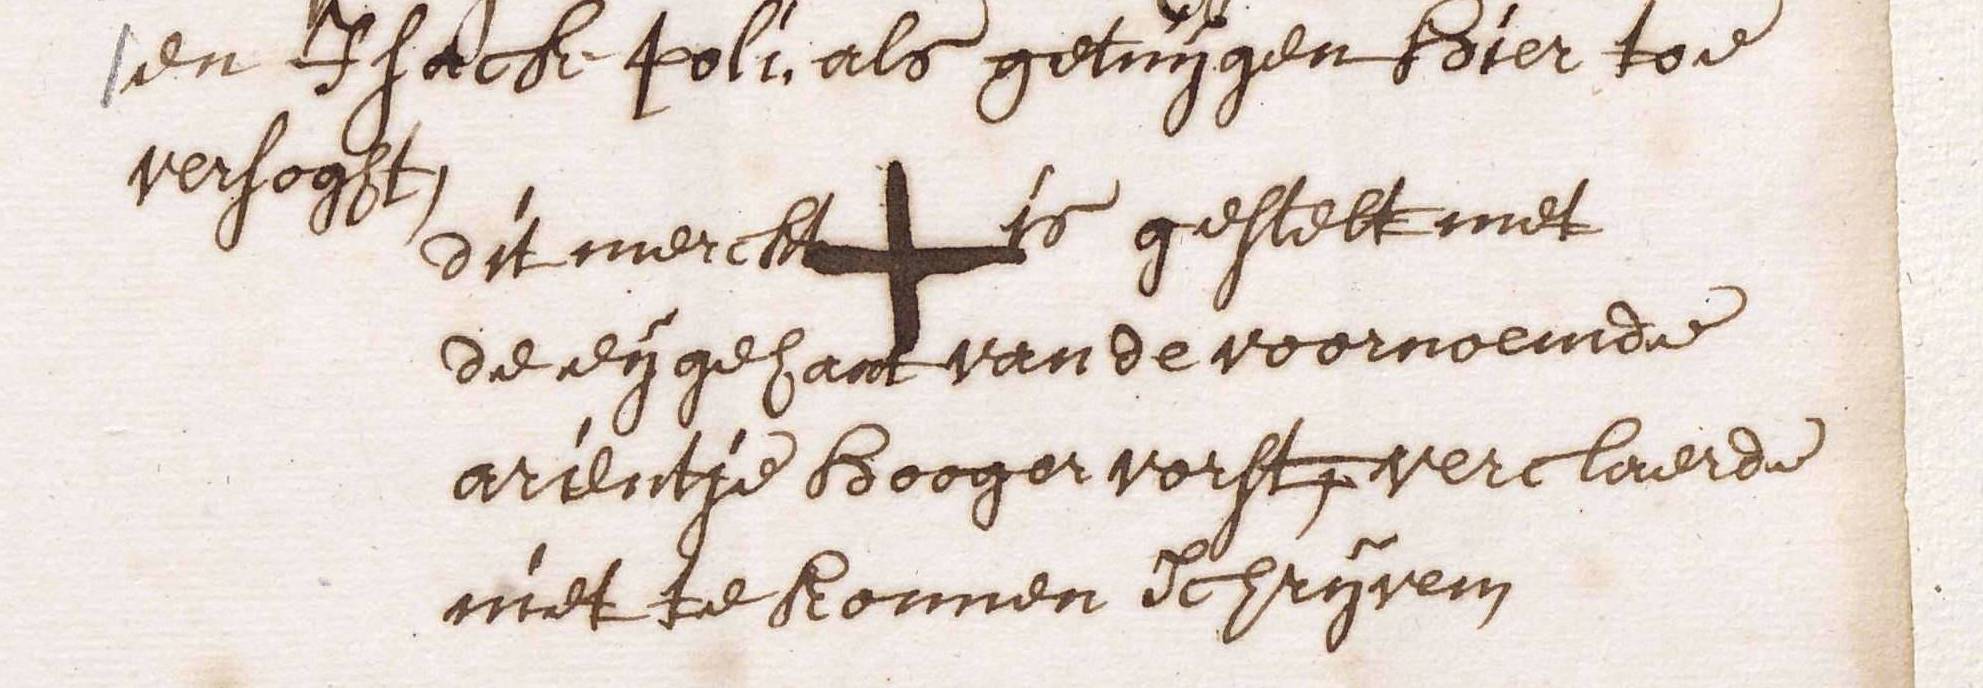 en Ishack poli. als getuijgen hier toe
versoght,
dit merckt is gestelt met
de eijgehant van de voornoemde
arientje hoogervorst, verclaerde
niet te konnen Schrijven